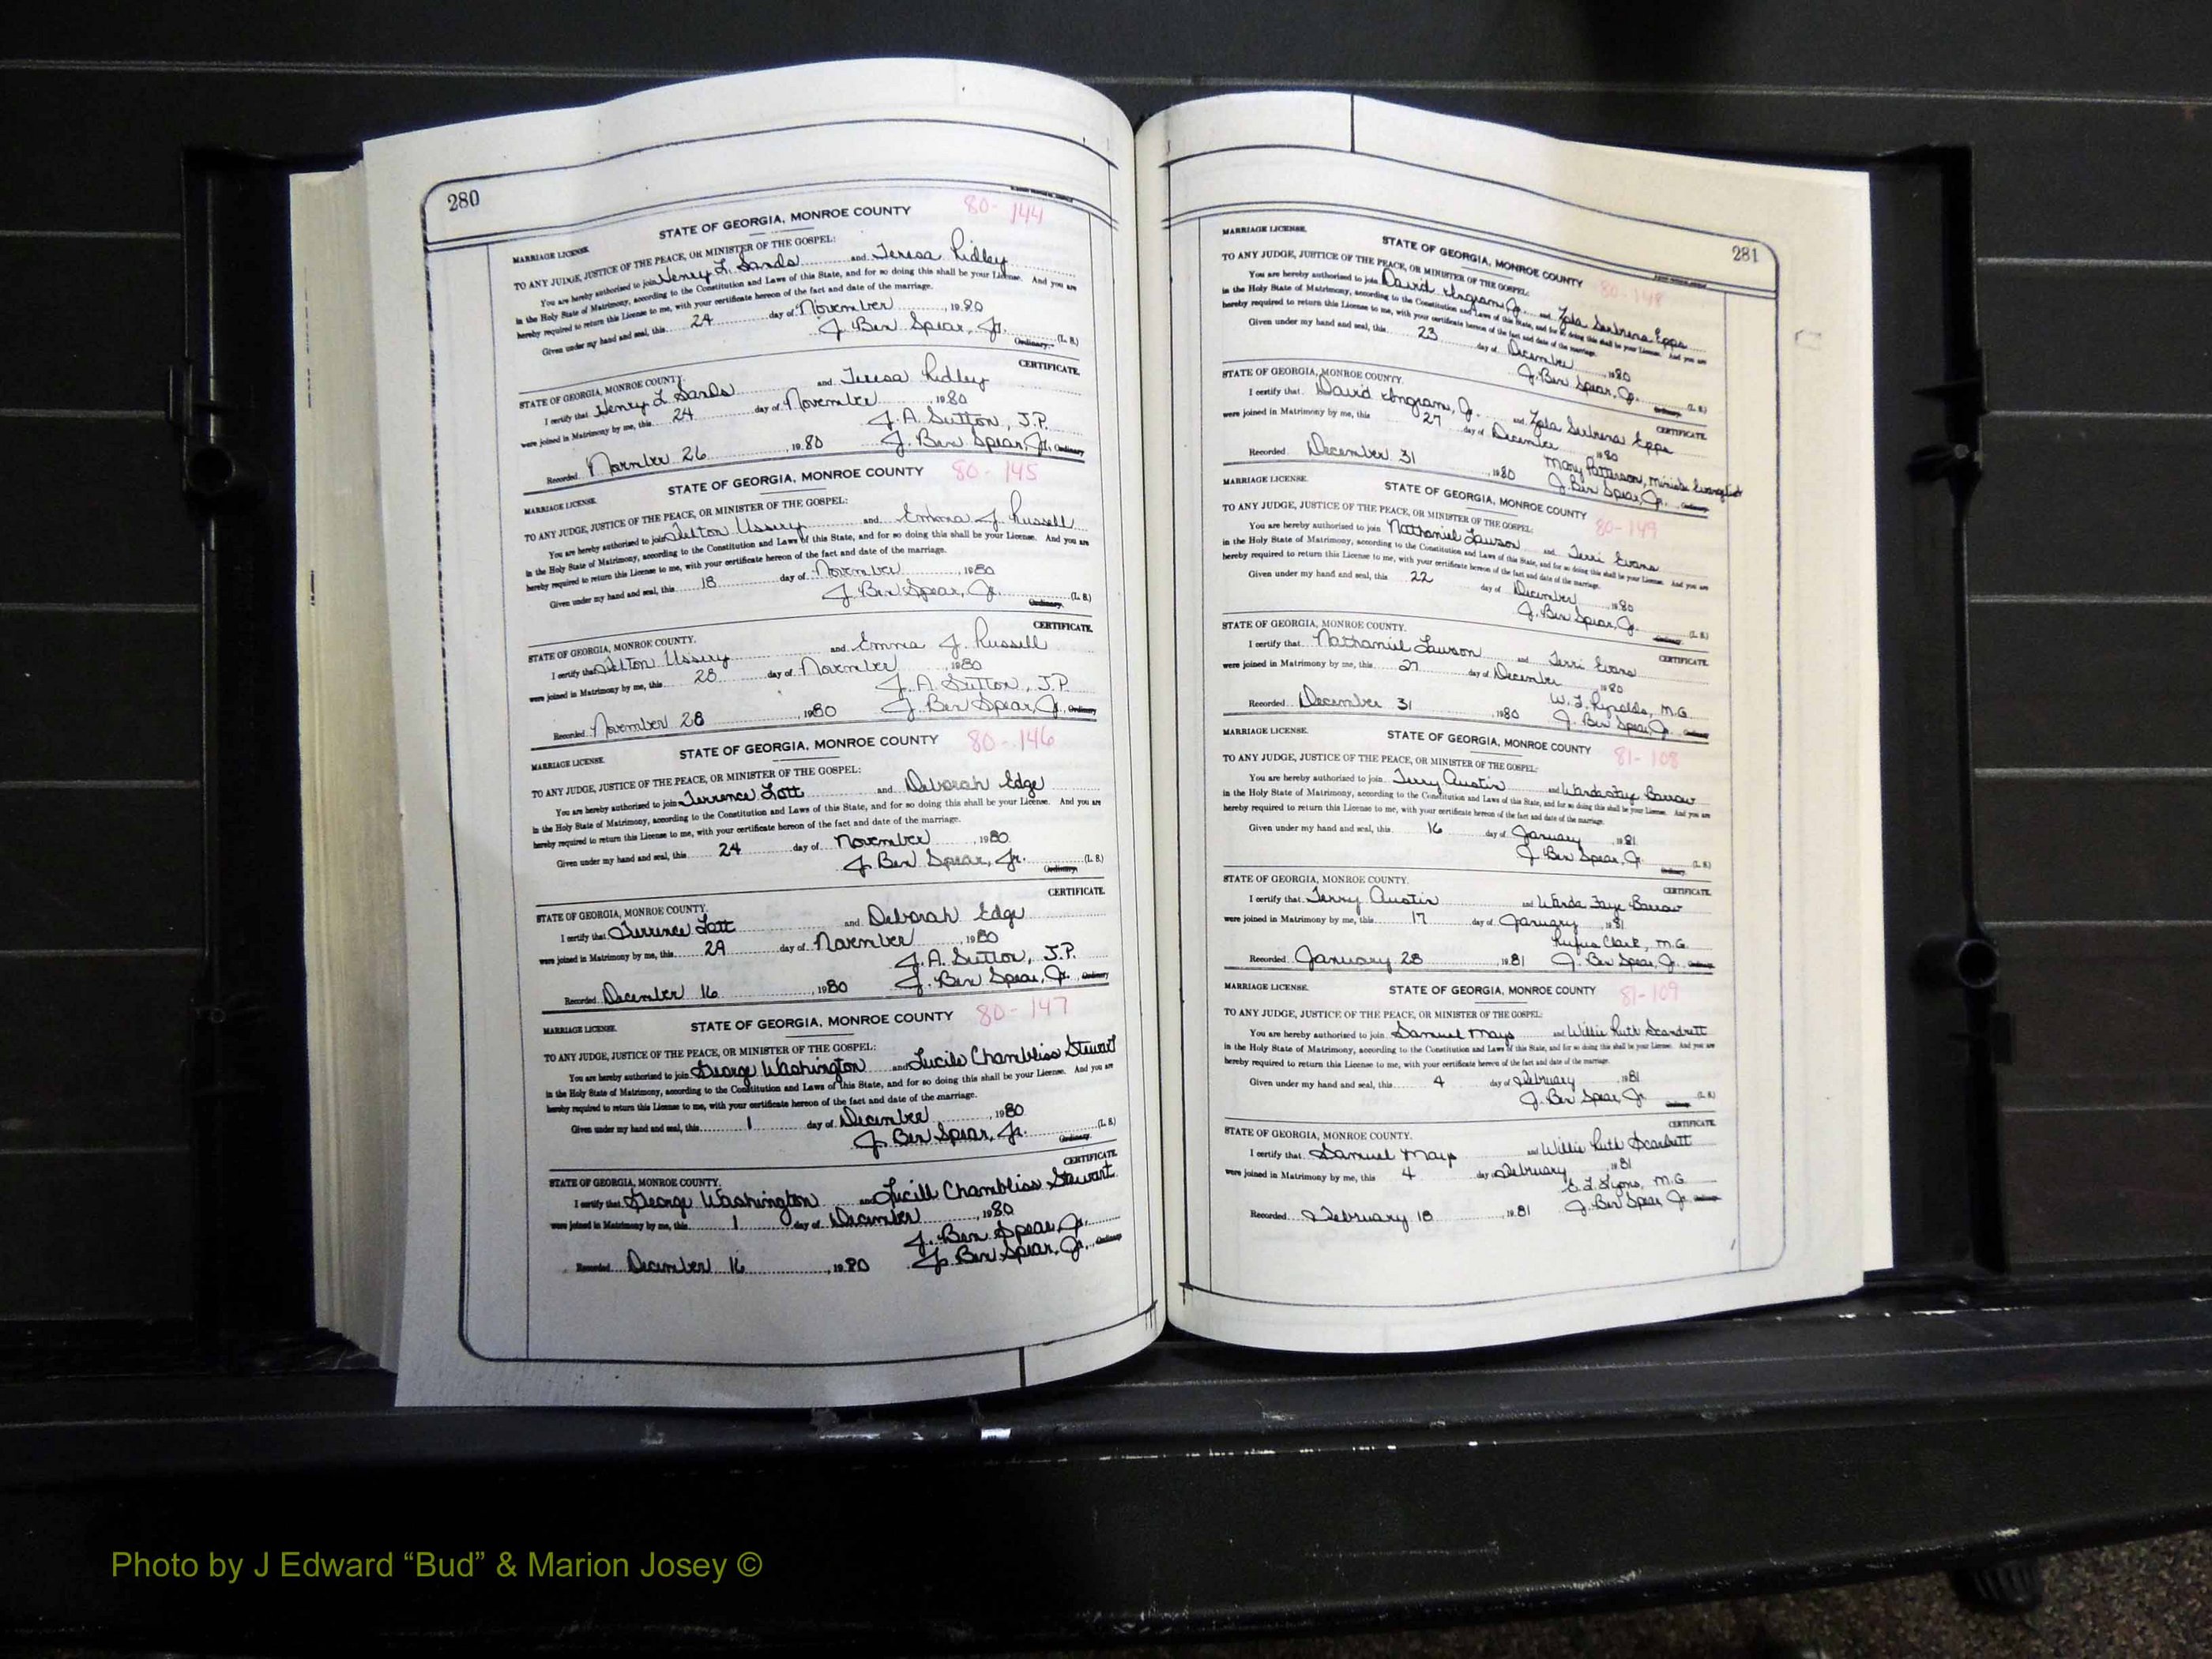 280
MARRIAGE LICENSE.
STATE OF GEORGIA, MONROE COUNTY 80-144
TO ANY JUDGE, JUSTICE OF THE PEACE, OR MINISTER OF THE GOSPEL:
You are hereby authorized to join Henry L. Sands and Teresa Ridley
in the Holy State of Matrimony, according to the Constitution and Laws of this State, and for so doing this shall be your License. And you are
hereby required to return this License to me, with your certificate hereon of the fact and date of the marriage.
Given under my hand and seal, this 24 day of November, 1980
J. Ben Spear, Jr. (L. S.)
Ordinary.
CERTIFICATE.
STATE OF GEORGIA, MONROE COUNTY.
I certify that Henry L Sands and Teresa Ridley
were joined in Matrimony by me, this 24 day of November, 1980
J. A. Sutton, J.P.
Recorded November 26, 1980 J. Ben Spear, Jr., Ordinary
MARRIAGE LICENSE.
STATE OF GEORGIA, MONROE COUNTY 80-145
TO ANY JUDGE, JUSTICE OF THE PEACE, OR MINISTER OF THE GOSPEL:
You are hereby authorized to join Ussery and Emma J. Russell
in the Holy State of Matrimony, according to the Constitution and Laws of this State, and for so doing this shall be your License. And you are
hereby required to return this License to me, with your certificate hereon of the fact and date of the marriage.
Given under my hand and seal, this 18 day of November, 1980
J. Ben Spear, Jr. (L. S.)
Ordinary.
CERTIFICATE.
STATE OF GEORGIA, MONROE COUNTY.
I certify that Ussery and Emma J. Russell
were joined in Matrimony by me, this 28 day of November, 1980
J. A. Sutton, J.P.
Recorded November 28, 1980 J. Ben Spear, Jr., Ordinary
MARRIAGE LICENSE.
STATE OF GEORGIA, MONROE COUNTY 80-146
TO ANY JUDGE, JUSTICE OF THE PEACE, OR MINISTER OF THE GOSPEL:
You are hereby authorized to join Terrence Lott and Deborah Edge
in the Holy State of Matrimony, according to the Constitution and Laws of this State, and for so doing this shall be your License. And you are
hereby required to return this License to me, with your certificate hereon of the fact and date of the marriage.
Given under my hand and seal, this 24 day of November, 1980
J. Ben Spear, Jr. (L. S.)
Ordinary.
CERTIFICATE.
STATE OF GEORGIA, MONROE COUNTY.
I certify that Terrence Lott and Deborah Edge
were joined in Matrimony by me, this 29 day of November, 1980
J. A. Sutton, J.P.
Recorded December 16, 1980 J. Ben Spear, Jr., Ordinary
MARRIAGE LICENSE.
STATE OF GEORGIA, MONROE COUNTY 80-147
TO ANY JUDGE, JUSTICE OF THE PEACE, OR MINISTER OF THE GOSPEL:
You are hereby authorized to join George Washington and Lucile Chambliss Stewart
in the Holy State of Matrimony, according to the Constitution and Laws of this State, and for so doing this shall be your License. And you are
hereby required to return this License to me, with your certificate hereon of the fact and date of the marriage.
Given under my hand and seal, this 1 day of December, 1980
J. Ben Spear, Jr. (L. S.)
Ordinary.
CERTIFICATE.
STATE OF GEORGIA, MONROE COUNTY.
I certify that George Washington and Lucill Chambliss Stewart
were joined in Matrimony by me, this 1 day of December, 1980
J. Ben Spear, Jr.
Recorded December 16, 1980 J. Ben Spear, Jr., Ordinary
281
MARRIAGE LICENSE.
STATE OF GEORGIA, MONROE COUNTY 80-148
TO ANY JUDGE, JUSTICE OF THE PEACE, OR MINISTER OF THE GOSPEL:
You are hereby authorized to join David Ingram, Jr. and Zola Epps
in the Holy State of Matrimony, according to the Constitution and Laws of this State, and for so doing this shall be your License. And you are
hereby required to return this License to me, with your certificate hereon of the fact and date of the marriage.
Given under my hand and seal, this 23 day of December, 1980
J. Ben Spear, Jr. (L. S.)
Ordinary.
CERTIFICATE.
STATE OF GEORGIA, MONROE COUNTY.
I certify that David Ingram, Jr. and Zola Epps
were joined in Matrimony by me, this 27 day of December, 1980
Mary Patterson, Minister Evangelist
Recorded December 31, 1980 J. Ben Spear, Jr., Ordinary
MARRIAGE LICENSE.
STATE OF GEORGIA, MONROE COUNTY 80-149
TO ANY JUDGE, JUSTICE OF THE PEACE, OR MINISTER OF THE GOSPEL:
You are hereby authorized to join Nathaniel Lawson and Terri Evans
in the Holy State of Matrimony, according to the Constitution and Laws of this State, and for so doing this shall be your License. And you are
hereby required to return this License to me, with your certificate hereon of the fact and date of the marriage.
Given under my hand and seal, this 22 day of December, 1980
J. Ben Spear, Jr. (L. S.)
Ordinary.
CERTIFICATE.
STATE OF GEORGIA, MONROE COUNTY.
I certify that Nathaniel Lawson and Terri Evans
were joined in Matrimony by me, this 27 day of December, 1980
W. L. Rynolds, M.G.
Recorded December 31, 1980 J. Ben Spear, Jr. Ordinary
MARRIAGE LICENSE.
STATE OF GEORGIA, MONROE COUNTY 81-108
TO ANY JUDGE, JUSTICE OF THE PEACE, OR MINISTER OF THE GOSPEL:
You are hereby authorized to join Terry Austin and Wanda Faye Barrow
in the Holy State of Matrimony, according to the Constitution and Laws of this State, and for so doing this shall be your License. And you are
hereby required to return this License to me, with your certificate hereon of the fact and date of the marriage.
Given under my hand and seal, this 16 day of January, 1981
J. Ben Spear, Jr. (L. S.)
Ordinary.
CERTIFICATE.
STATE OF GEORGIA, MONROE COUNTY.
I certify that Terry Austin and Wanda Faye Barrow
were joined in Matrimony by me, this 17 day of January, 1981
Rufus Clark, M.G.
Recorded January 28, 1981 J. Ben Spear, Jr. Ordinary
MARRIAGE LICENSE.
STATE OF GEORGIA, MONROE COUNTY 81-109
TO ANY JUDGE, JUSTICE OF THE PEACE, OR MINISTER OF THE GOSPEL:
You are hereby authorized to join Samuel Mays and Willie Ruth Scandrett
in the Holy State of Matrimony, according to the Constitution and Laws of this State, and for so doing this shall be your License. And you are
hereby required to return this License to me, with your certificate hereon of the fact and date of the marriage.
Given under my hand and seal, this 4 day of February, 1981
J. Ben Spear, Jr. (L. S.)
Ordinary.
CERTIFICATE.
STATE OF GEORGIA, MONROE COUNTY.
I certify that Samuel Mays and Willie Ruth
were joined in Matrimony by me, this 4 day February, 1981
Lyons, M.G.
Recorded February 18, 1981 J. Ben Spear Jr. Ordinary
Photo by J Edward “Bud” & Marion Josey ©